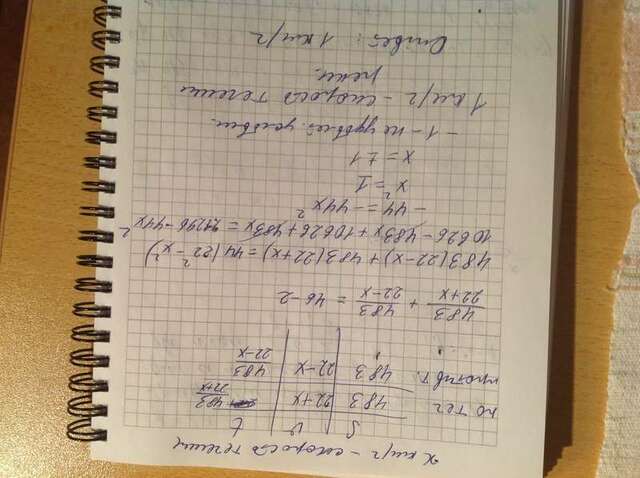 x км/г - скорость течения
S v t
по теч 483 22+x 483/22+x
против т. 483 22-x 483/22-x
483/22+x + 483/22-x = 46-2
483(22-x)+483(22+x)=44(22²-x²)
10626-483x+10626+483x=21296-44x²
-44=-44x²
x²=1
x=±1
-1 - не удовлет. условию.
1 км/г - скорость течения
реки.
Ответ: 1 км/г